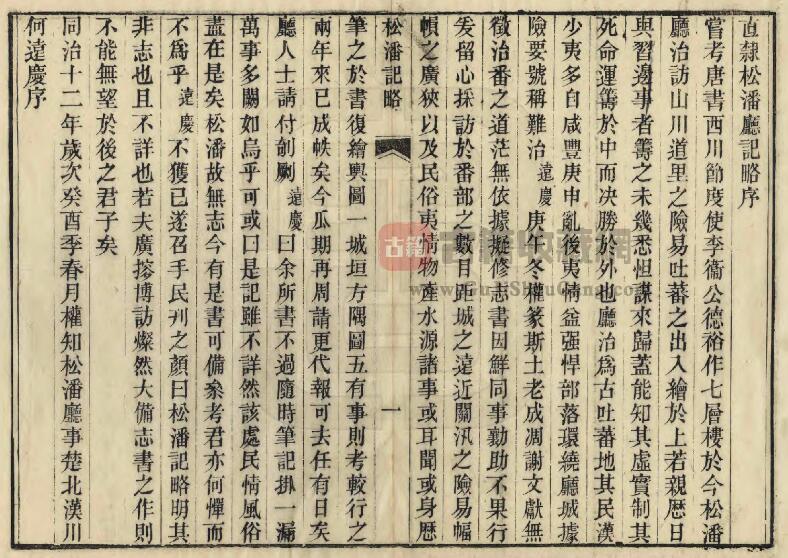 直隸松潘廳記略序
嘗考唐書西川節度使李衞公德裕作七層樓於今松潘
廳治訪山川道里之險易吐蕃之出入繪於上若親歷日
與習邊事者籌之未幾悉怛謀來歸蓋能知其虛實制其
死命運籌於中而决勝於外也廳治爲古吐蕃地其民漢
少夷多自咸豐庚申亂後夷情益强悍部落環繞廳城據
險要號稱難治遠慶庚午冬權篆斯土老成凋謝文獻無
徵治番之道茫無依據擬修志書因鮮同事勷助不果行
爰留心採訪於番部之數目距城之遠近關汛之險易幅
幀之廣狹以及民俗夷情物產水源諸事或耳聞或身歷
松潘記略
一
筆之於書復繪輿圖一城垣方隅圖五有事則考較行之
兩年來已成帙矣今瓜期再周請更代報可去任有日矣
廳人士請付剞劂遠慶曰余所書不過隨時筆記掛一漏
萬事多闕如烏乎可或曰是記雖不詳然該處民情風俗
盡在是矣松潘故無志今有是書可備叅考君亦何憚而
不爲乎遠慶不獲已遂召手民刋之顏曰松潘記略明其
非志也且不詳也若夫廣搜博訪燦然大備志書之作則
不能無望於後之君子矣
同治十二年歲次癸酉季春月權知松潘廳事楚北漢川
何遠慶序
古籍
古籍收藏網
www.GuJiShouCang.com